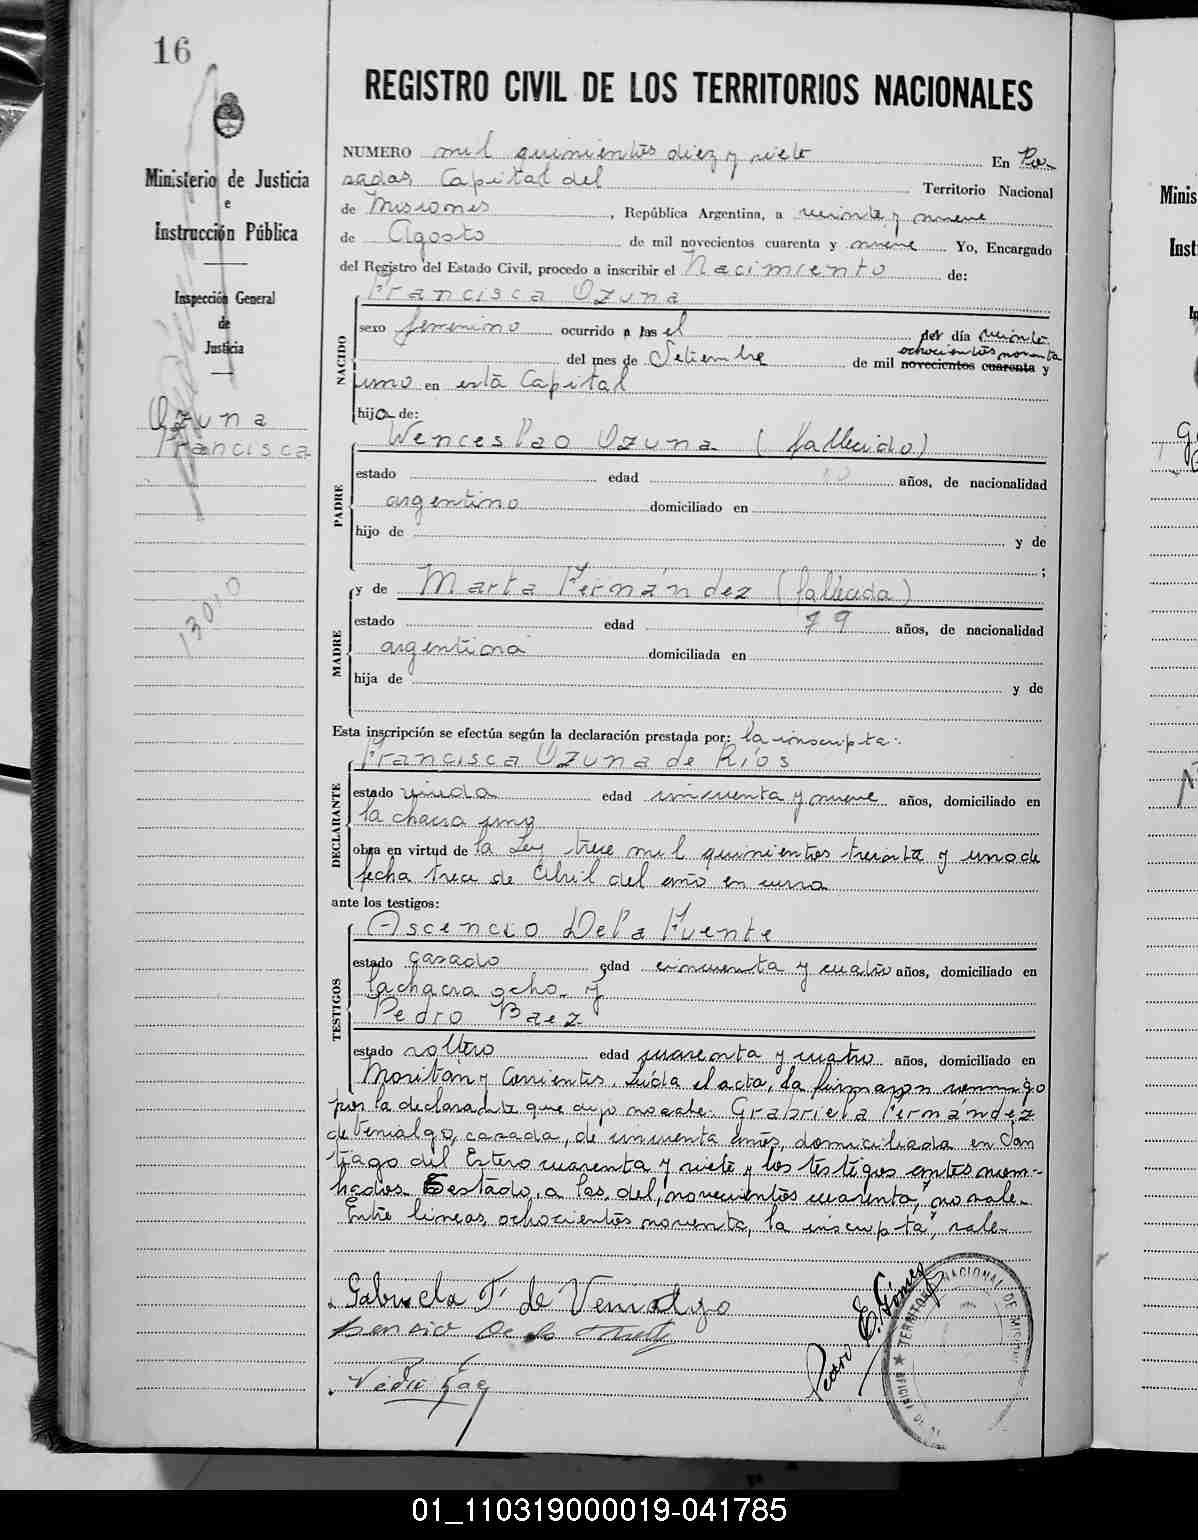 16
REGISTRO CIVIL DE LOS TERRITORIOS NACIONALES
Ministerio de Justicia
e
Instrucción Pública
Inspección General
de
Justicia
Ozuna
Francisca
13010
NUMERO mil quinientos diez y siete En Po-
sadas Capital del Territorio Nacional
de Misiones, República Argentina, a veinte y nueve
de Agosto de mil novecientos cuarenta y nueve Yo, Encargado
del Registro del Estado Civil, procedo a inscribir el Nacimiento de:
Francisca Ozuna
NACIDO
sexo femenino ocurrido a las el del día veinte
ochocientos noventa
del mes de Setiembre de mil novecientos cuarenta y
uno en esta Capital
hija de:
Wenceslao Ozuna (fallecido)
PADRE
estado edad años, de nacionalidad
argentino domiciliado en
hijo de y de
;
y de Marta Fernández (fallecida)
MADRE
estado edad 79 años, de nacionalidad
argentina domiciliada en
hija de y de
Esta inscripción se efectúa según la declaración prestada por: la inscripta:
Francisca Ozuna de Ríos
DECLARANTE
estado viuda edad cincuenta y nueve años, domiciliado en
la chacra uno
obra en virtud de la Ley trece mil quinientos treinta y uno de
fecha trece de Abril del año en curso
ante los testigos:
Ascencio De la Fuente
TESTIGOS
estado casado edad cincuenta y cuatro años, domiciliado en
la chacra ocho y
Pedro Baez
estado soltero edad cuarenta y cuatro años, domiciliado en
y Corrientes. Leída el acta, la firmaron conmigo
por la declarante que dijo no sabe. Grabriela Fernandez
de Venialgo, casada, de cincuenta años, domiciliada en San
tiago del Estero cuarenta y siete y los testigos antes nom-
brados. estado, a las, del, novecientos cuarenta, no vale.
Entre líneas, ochocientos noventa, la inscripta, vale.
Gabriela F. de Venialgo
Pedro Baez
Pedro E. Gómez
TERRITORIO NACIONAL DE MISIONES
Minis
Inst
01_110319000019-041785